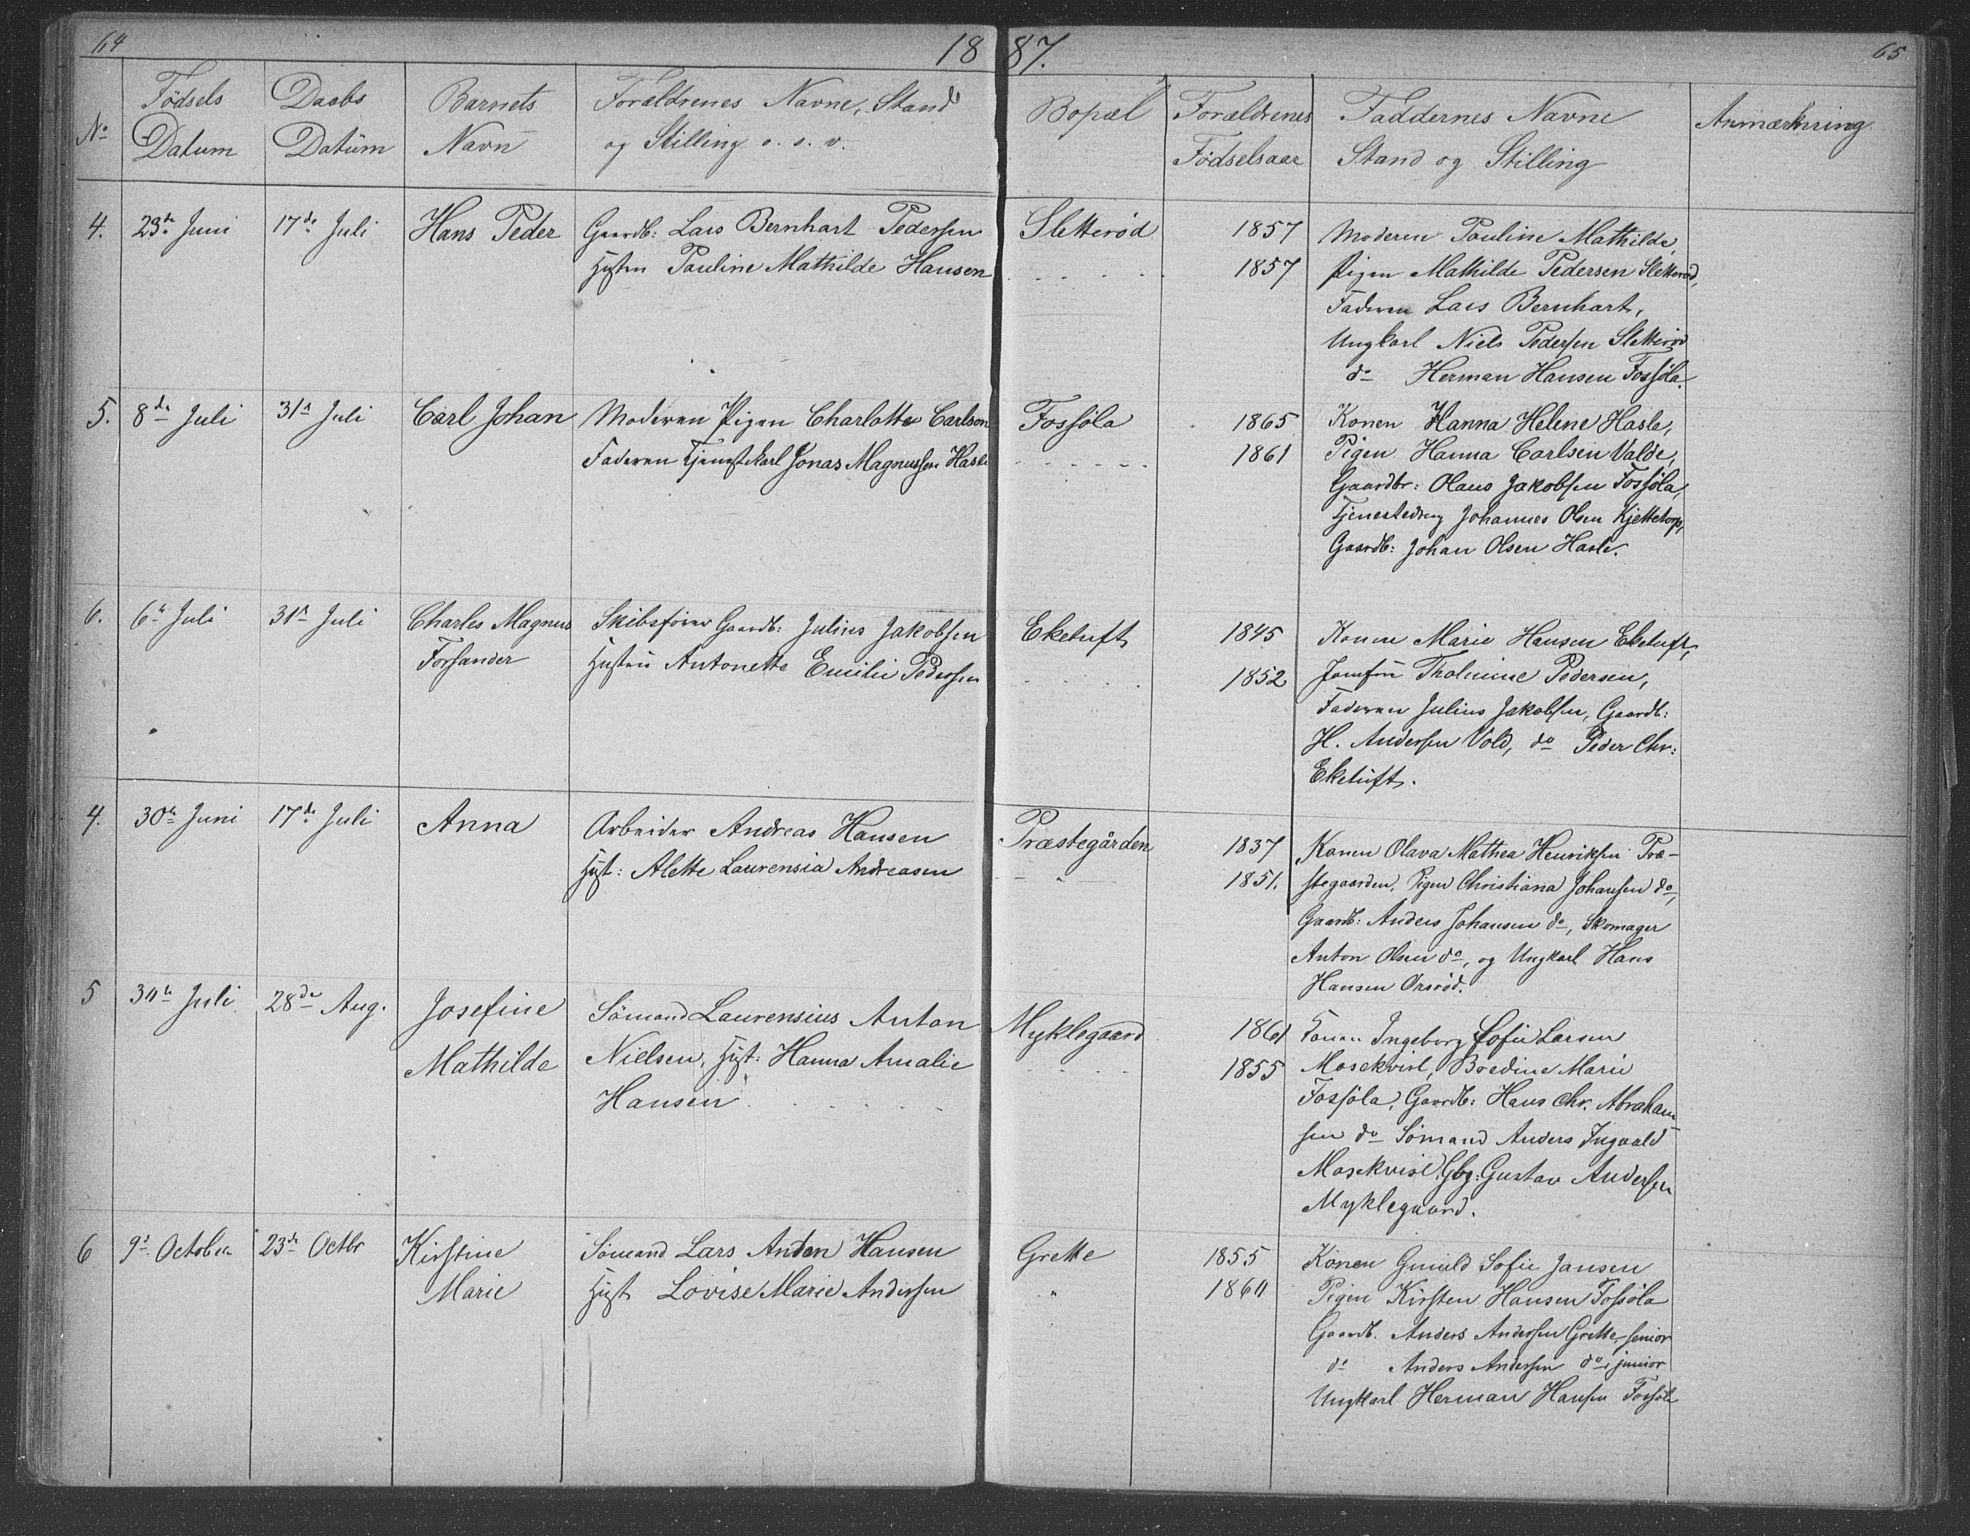 64
1887.
65
No
Fødsels Datum
Daabs Datum
Barnets Navn
Forældrenes Navne, Stand og Stilling o. s. v.
Bopæl
Forældrenes Fødselsaar
Faddernes Navne Stand og Stilling
Anmærkning
4.
23de Juni
17de Juli
Hans Peder
Gaardb: Lars Bernhart Pedersen
Hustru Pauline Mathilde Hansen
Sletterød
1857
1857
Moderen Pauline Mathilde,
Pigen Mathilde Pedersen Sletterød,
Faderen Lars Bernhart,
Ungkarl Niels Pedersen Sletterød
do Herman Hansen Fossøla.
5.
8de Juli
31te Juli
Carl Johan
Moderen Pigen Charlotte Carlson
Faderen Tjenestekarl Jonas Magnussen Hasle
Fosføla
1865
1861
Konen Hanna Helene Hasle,
Pigen Hanna Carlsen Valde,
Gaardbr: Olaus Jakobsen Fosføla,
Tjenestedreng Johannes Olsen Kjettetorp,
Gaardb: Johan Olsen Hasle.
6.
6te Juli
31te Juli
Charles Magnus
Forsander
Skibsfører Gaardb: Julius Jakobsen
Hustru Antonette Emilie Pedersen
Eketuft
1845
1852
Konen Marie Hansen Eketuft,
Jomfru Tholmine Pedersen,
Faderen Julius Jakobsen, Gaardb:
H. Andersen Vold, do Peder Chr:
Eketuft.
4.
30te Juni
17de Juli
Anna
Arbeider Andreas Hansen
Hust: Alette Laurensia Andreasen
Præstegården
1837
1851.
Konen Olava Mathea Henriksen Præ-
stegaarden, Pigen Christiana Johansen do,
Gaardb: Anders Johansen do, Skomager
Anton Olsen do, og Ungkarl Hans
Hansen Orsrød.
5
30te Juli
28de Aug.
Josefine
Mathilde
Sømand Laurensius Anton
Nielsen, Hust: Hanna Amalie
Hansen
Myklegaard
1861
1855
Konen Ingeborg Sofie Larsen
Mosekvist, Bredine Marie
Fosføla, Gaardb: Hans Chr. Abraham-
sen do Sømand Anders Ingvald
Mosekvist, Gbg: Gustav Andersen
Myklegaard.
6
9de October
23de Octbr
Kirstine
Marie
Sømand Lars Anton Hansen
Hust Lovise Marie Andersen
Grette
1855
1860
Konen Gunild Sofie Jansen
Pigen Kirsten Hansen Fossøla
Gaardb. Anders Andersen Grette, senior
do Anders Andersen do, junior
Ungkarl Herman Hansen Fosføla